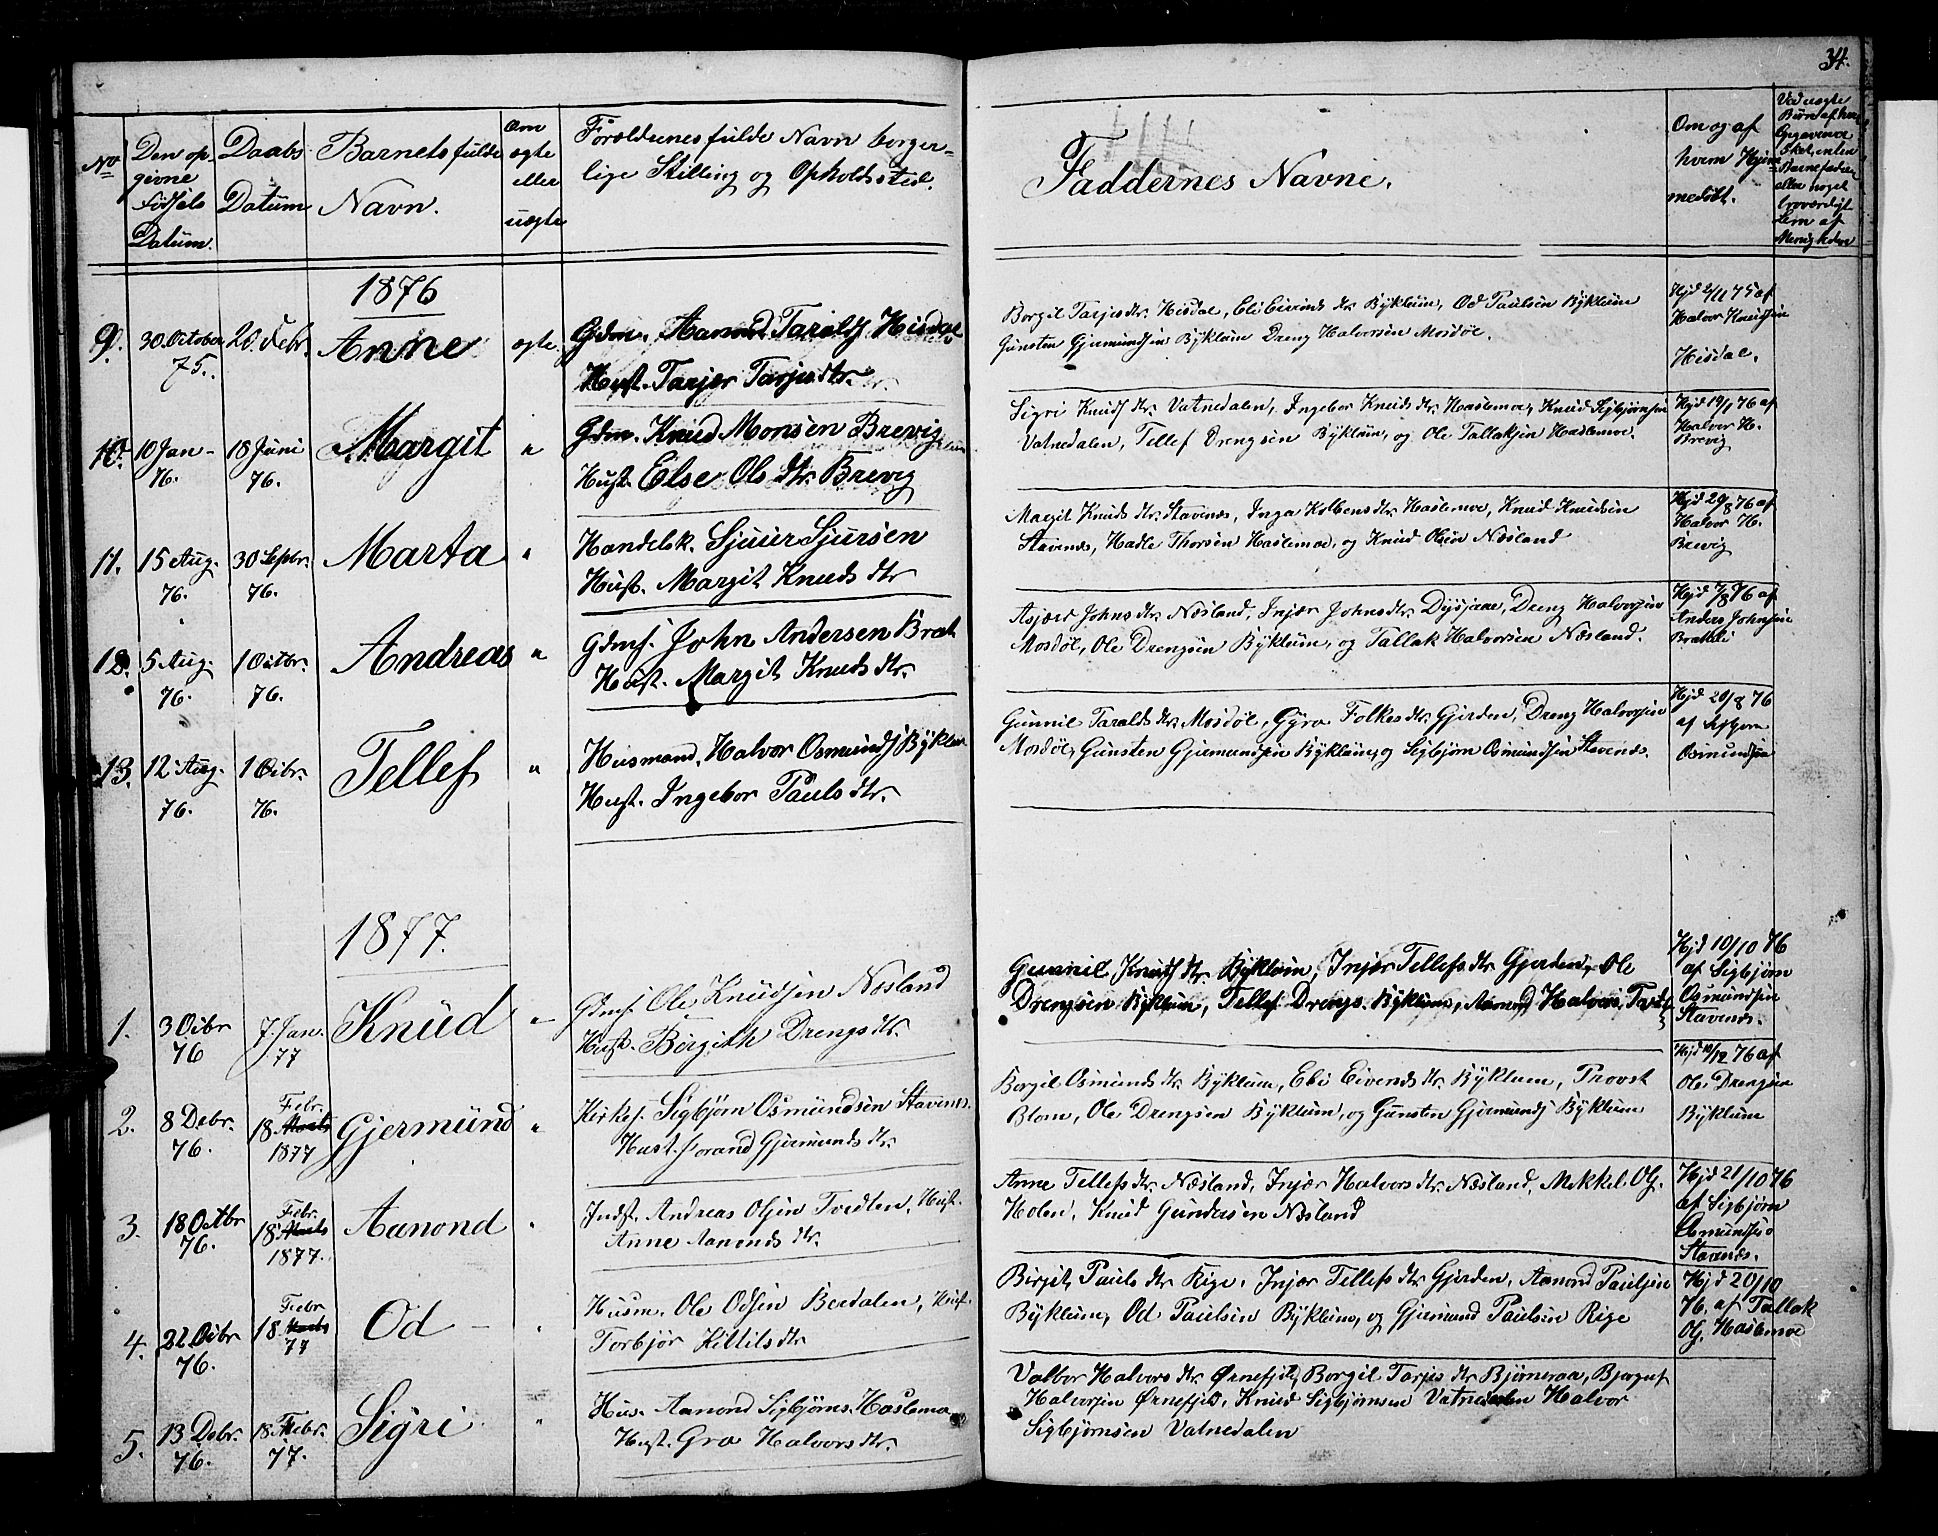 34.
No
Den op
givne
Fødsels
Datum.
Daabs
Datum
Barnets fulde
Navn.
Om
ægte
eller
uægte
Forældrenes fulde Navn borger=
lige Stilling og Opholdssted.
Faddernes Navne.
Om og af
hvem Hjem
medøbt.
Ved uægte
Børn af
Opgavene
Barnefaderen
eller noget
troværdigt
Lem af
Menigheden
1876
9. 30 October 20 Febr. Anne ægte. Gdm. Aanond Taralds Hisdal
75.
Hust. Tarjer Tarjesdtr.
Borgil Tarjesdtr. Hisdal, Eli Eivindsdtr. Bÿklum, Od Paulsen Bÿklum
Gunsten Gjermundsen Bÿklum Dreng Halvorsen Mosdøl.
Hjd 2/11 75 af
Halvor Knudsen
Hisdal.
10. 10 Jan - 18 Juni Margit " Gdm. Knud Monsen Brevig
76. 76. Hust. Else Olsdtr. Brevig
Sigri Knudsdtr. Vatnedalen, Ingebor Knudsdtr. Haslemoe, Knud Sigbjørnsen
Vatnedalen, Tellef Drengsen Bÿklum, og Ole Tallaksen Haslemoe.
Hjd 19/1 76 af
Halvor H.
Brevig
11. 15 Aug. 30 Septbr. Marta " Handelsk. Sjuur Sjursen
76. 76. Hust. Margit Knudsdtr
Margit Knudsdtr. Stavenes, Inga Kolbensdtr. Haslemoe, Knud Knudsen
Stavenes, Hadle Thorsen Haslemoe, og Knud Olsen Næsland
Hjd 29/8 76 af
Halvor H.
Brevig
12. 5 Aug. 1 Octbr. Andreas " Gdmf. John Andersen Brat
76. 76. Hust. Margit Knudsdtr.
Asjær Johnsdtr. Næsland, Injær Johnsdtr. Dysjane, Dreng Halvorsen
Mosdøl, Ole Drengsen Bÿklum, og Tallak Halvorsen Næsland.
Hjd 7/8 76 af
Anders Johnsen
Bratteli
13. 12 Aug. 1 Octbr. Tellef " Husmand. Halvor Osmunds Bÿklum
76. 76. Hust. Ingebor Paulsdtr.
Gunnil Taraldsdtr. Mosdøl, Gyro Folkesdtr. Gjerden, Dreng Halvorsen
Mosdøl, Gunsten Gjermundsen Bÿklum, og Sigbjørn Osmundsen Stavenes.
Hjd 20/8 76
af Sigbjørn
Osmundsen
1877.
1. 3 Octbr 7 Jan. Knud " Gdmf. Ole Knudsen Næsland
76 77 Hust. Borgith Drengsdtr.
Gunnil Knudsdtr. Bÿklum, Injær Tellefsdtr Gjerden, Ole
Drengsen Bÿklum, Tellef Drengs. Bÿklum, Aanond Halvors.
Hjd 10/10 76
af Sigbjørn
Osmundsen
Stavenes.
2. 8 Decbr. 18 Marts Gjermund " Kirkes. Sigbjørn Osmundsen Stavenes.
Febr.
76. 1877 Hust. Gjermundsdtr.
Borgil Osmundsdtr. Bÿklum, Ebi Eivendsdtr. Bÿklum, Provst
Blom, Ole Drengsen Bÿklum, og Gunsten Gjermunds Bÿklum
Hjd 10/12 76 af
Ole Drengsen
Bÿklum
3. 18 Octbr 18 Marts Aanond " Indst. Andreas Olsen Tvedten, Hust.
Febr.
76. 1877. Anne Aanondsdtr.
Anne Tellefsdtr. Næsland, Injær Halvorsdtr. Næsland, Mekkel Ols.
Holen, Knud Gundersen Næsland
Hjd 21/10 76
af Sigbjørn
Osmundsen
Stavenes.
4. 22 Octbr 18 Marts Od - " Husm. Ole Odsen Berdalen, Hust.
Febr
76. 77 Torbjør Kittilsdtr
Birgit Paulsdtr Rige, Injær Tellefsdtr Gjerden, Aanond Paulsen
Bÿklum, Od Paulsen Bÿklum, og Gjermund Paulsen Rige
Hjd 20/10
76. af Tallak
Ols. Haslemoe
5. 13 Decbr. 18 Febr. Sigri " Hus. Aanond Sigbjørns. Haslemo
76. 77. Hust. Gro Halvorsdtr.
Valbor Halvorsdtr Ørnefjel, Borgil Tarjesdtr Bjørneraa, Bjørguf
Halvorsen Ørnefjel, Knud Sigbjørnsen Vatnedalen Halvor
Sigbjørnsen Vatnedalen